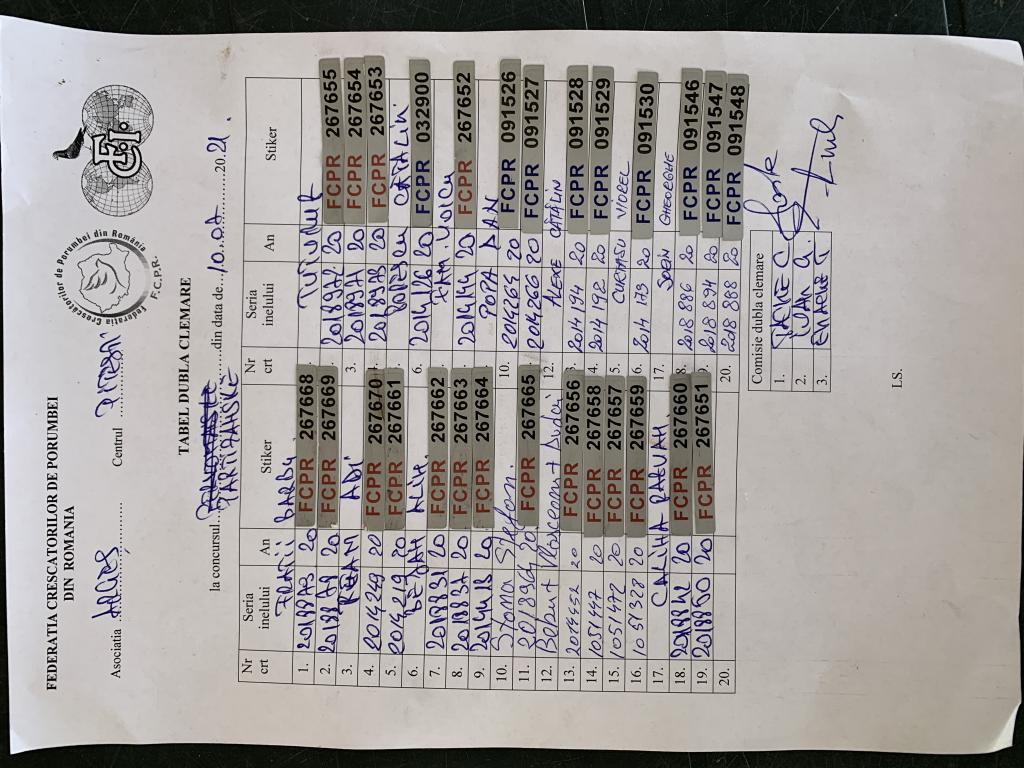 FEDERATIA CRESCATORILOR DE PORUMBEI
DIN ROMANIA
Federatia Crescătorilor de Porumbei din România
F.C.P.R.
FCI
Asociatia ARGES Centrul PITESTI
TABEL DUBLA CLEMARE
la concursul PARTIZANSKE din data de 10.07.2021.
Nr crt Seria inelului An Stiker
BARBU
1. 2018873 20 FCPR 267668
2. 2018879 20 FCPR 267669
3. ADI
4. 2014249 20 FCPR 267670
5. 2014219 20 FCPR 267661
6. ALIN
7. 2018831 20 FCPR 267662
8. 2018837 20 FCPR 267663
9. 20 FCPR 267664
10. Stama Stefan.
11. 2018964 20 FCPR 267665
12. Bebut Vlasceanu + Dudoi
13. 2014552 20 FCPR 267656
14. 1051447 20 FCPR 267658
15. 1051472 20 FCPR 267657
16. 1051328 20 FCPR 267659
17. CALINA RAZVAN
18. 20 FCPR 267660
19. 2018850 20 FCPR 267651
20.
Nr crt Seria inelului An Stiker
2018972 20 FCPR 267655
2018971 20 FCPR 267654
3. 2018978 20 FCPR 267653
POPESCU CATALIN
6. 2014126 20 FCPR 032900
VOICU
2014144 20 FCPR 267652
POPA DAN
10. 2014265 20 FCPR 091526
2014266 20 FCPR 091527
12. ALEXE CATALIN
2014194 20 FCPR 091528
4. 2014192 20 FCPR 091529
5. VIOREL
6. 2014173 20 FCPR 091530
17. GHEORGHE
8. 2018886 20 FCPR 091546
9. 2018894 20 FCPR 091547
20. 2018888 20 FCPR 091548
Comisie dubla clemare
1.
2. IVAN G.
3. ENACHE T.
I.S.